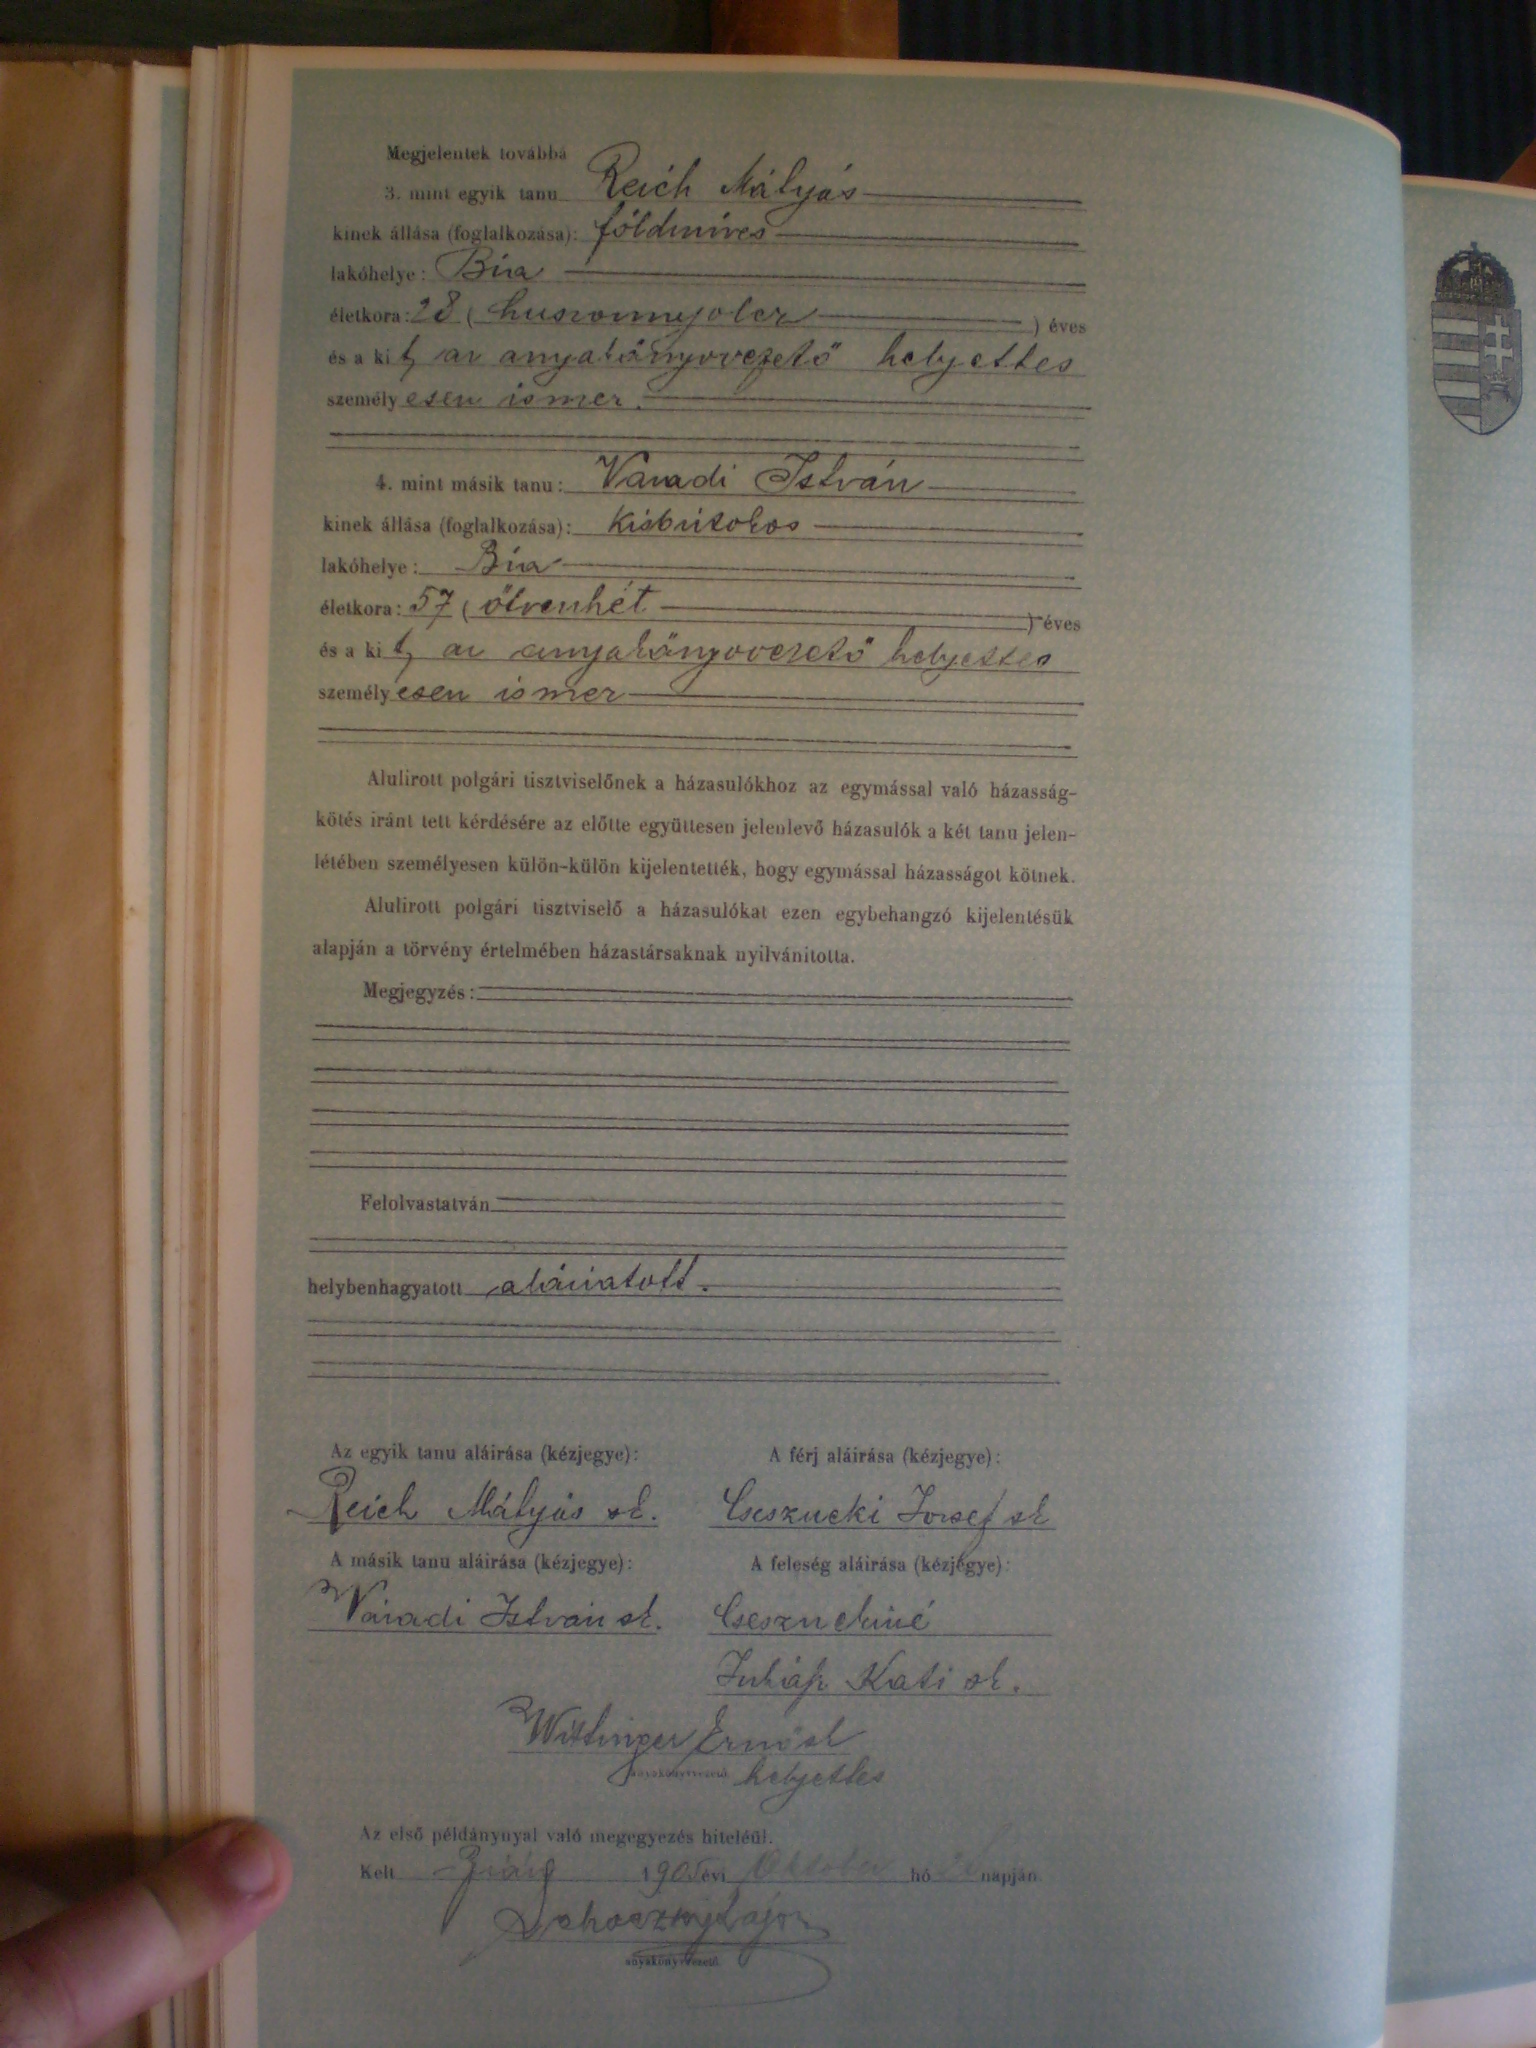 Megjelentek továbbá
3. mint egyik tanu Reich Mátyás
kinek állása (foglalkozása): földmíves
lakóhelye: Bia
életkora: 28 (huszonnyolcz) éves
és a kit az anyakönyvvezető helyettes
személyesen ismer.
4. mint másik tanu: Váradi István
kinek állása (foglalkozása): kisbirtokos
lakóhelye: Bia
életkora: 57 (ötvenhét) éves
és a kit az anyakönyvvezető helyettes
személyesen ismer
Alulirott polgári tisztviselőnek a házasulókhoz az egymással való házasság-
kötés iránt tett kérdésére az előtte együttesen jelenlevő házasulók a két tanu jelen-
létében személyesen külön-külön kijelentették, hogy egymással házasságot kötnek.
Alulirott polgári tisztviselő a házasulókat ezen egybehangzó kijelentésük
alapján a törvény értelmében házastársaknak nyilvánitotta.
Megjegyzés:
Felolvastatván
helybenhagyatott aláiratott.
Az egyik tanu aláirása (kézjegye): A férj aláirása (kézjegye):
Reich Mátyás sk. Cseszneki József sk
A másik tanu aláirása (kézjegye): A feleség aláirása (kézjegye):
Váradi István sk. Csesznekiné
Juhász Kati sk.
Wittinger Ernő sk
anyakönyvvezető helyettes
Az első példánynyal való megegyezés hiteléül.
Kelt Bián 1905 évi Október hó napján
Lajos
anyakönyvvezető.